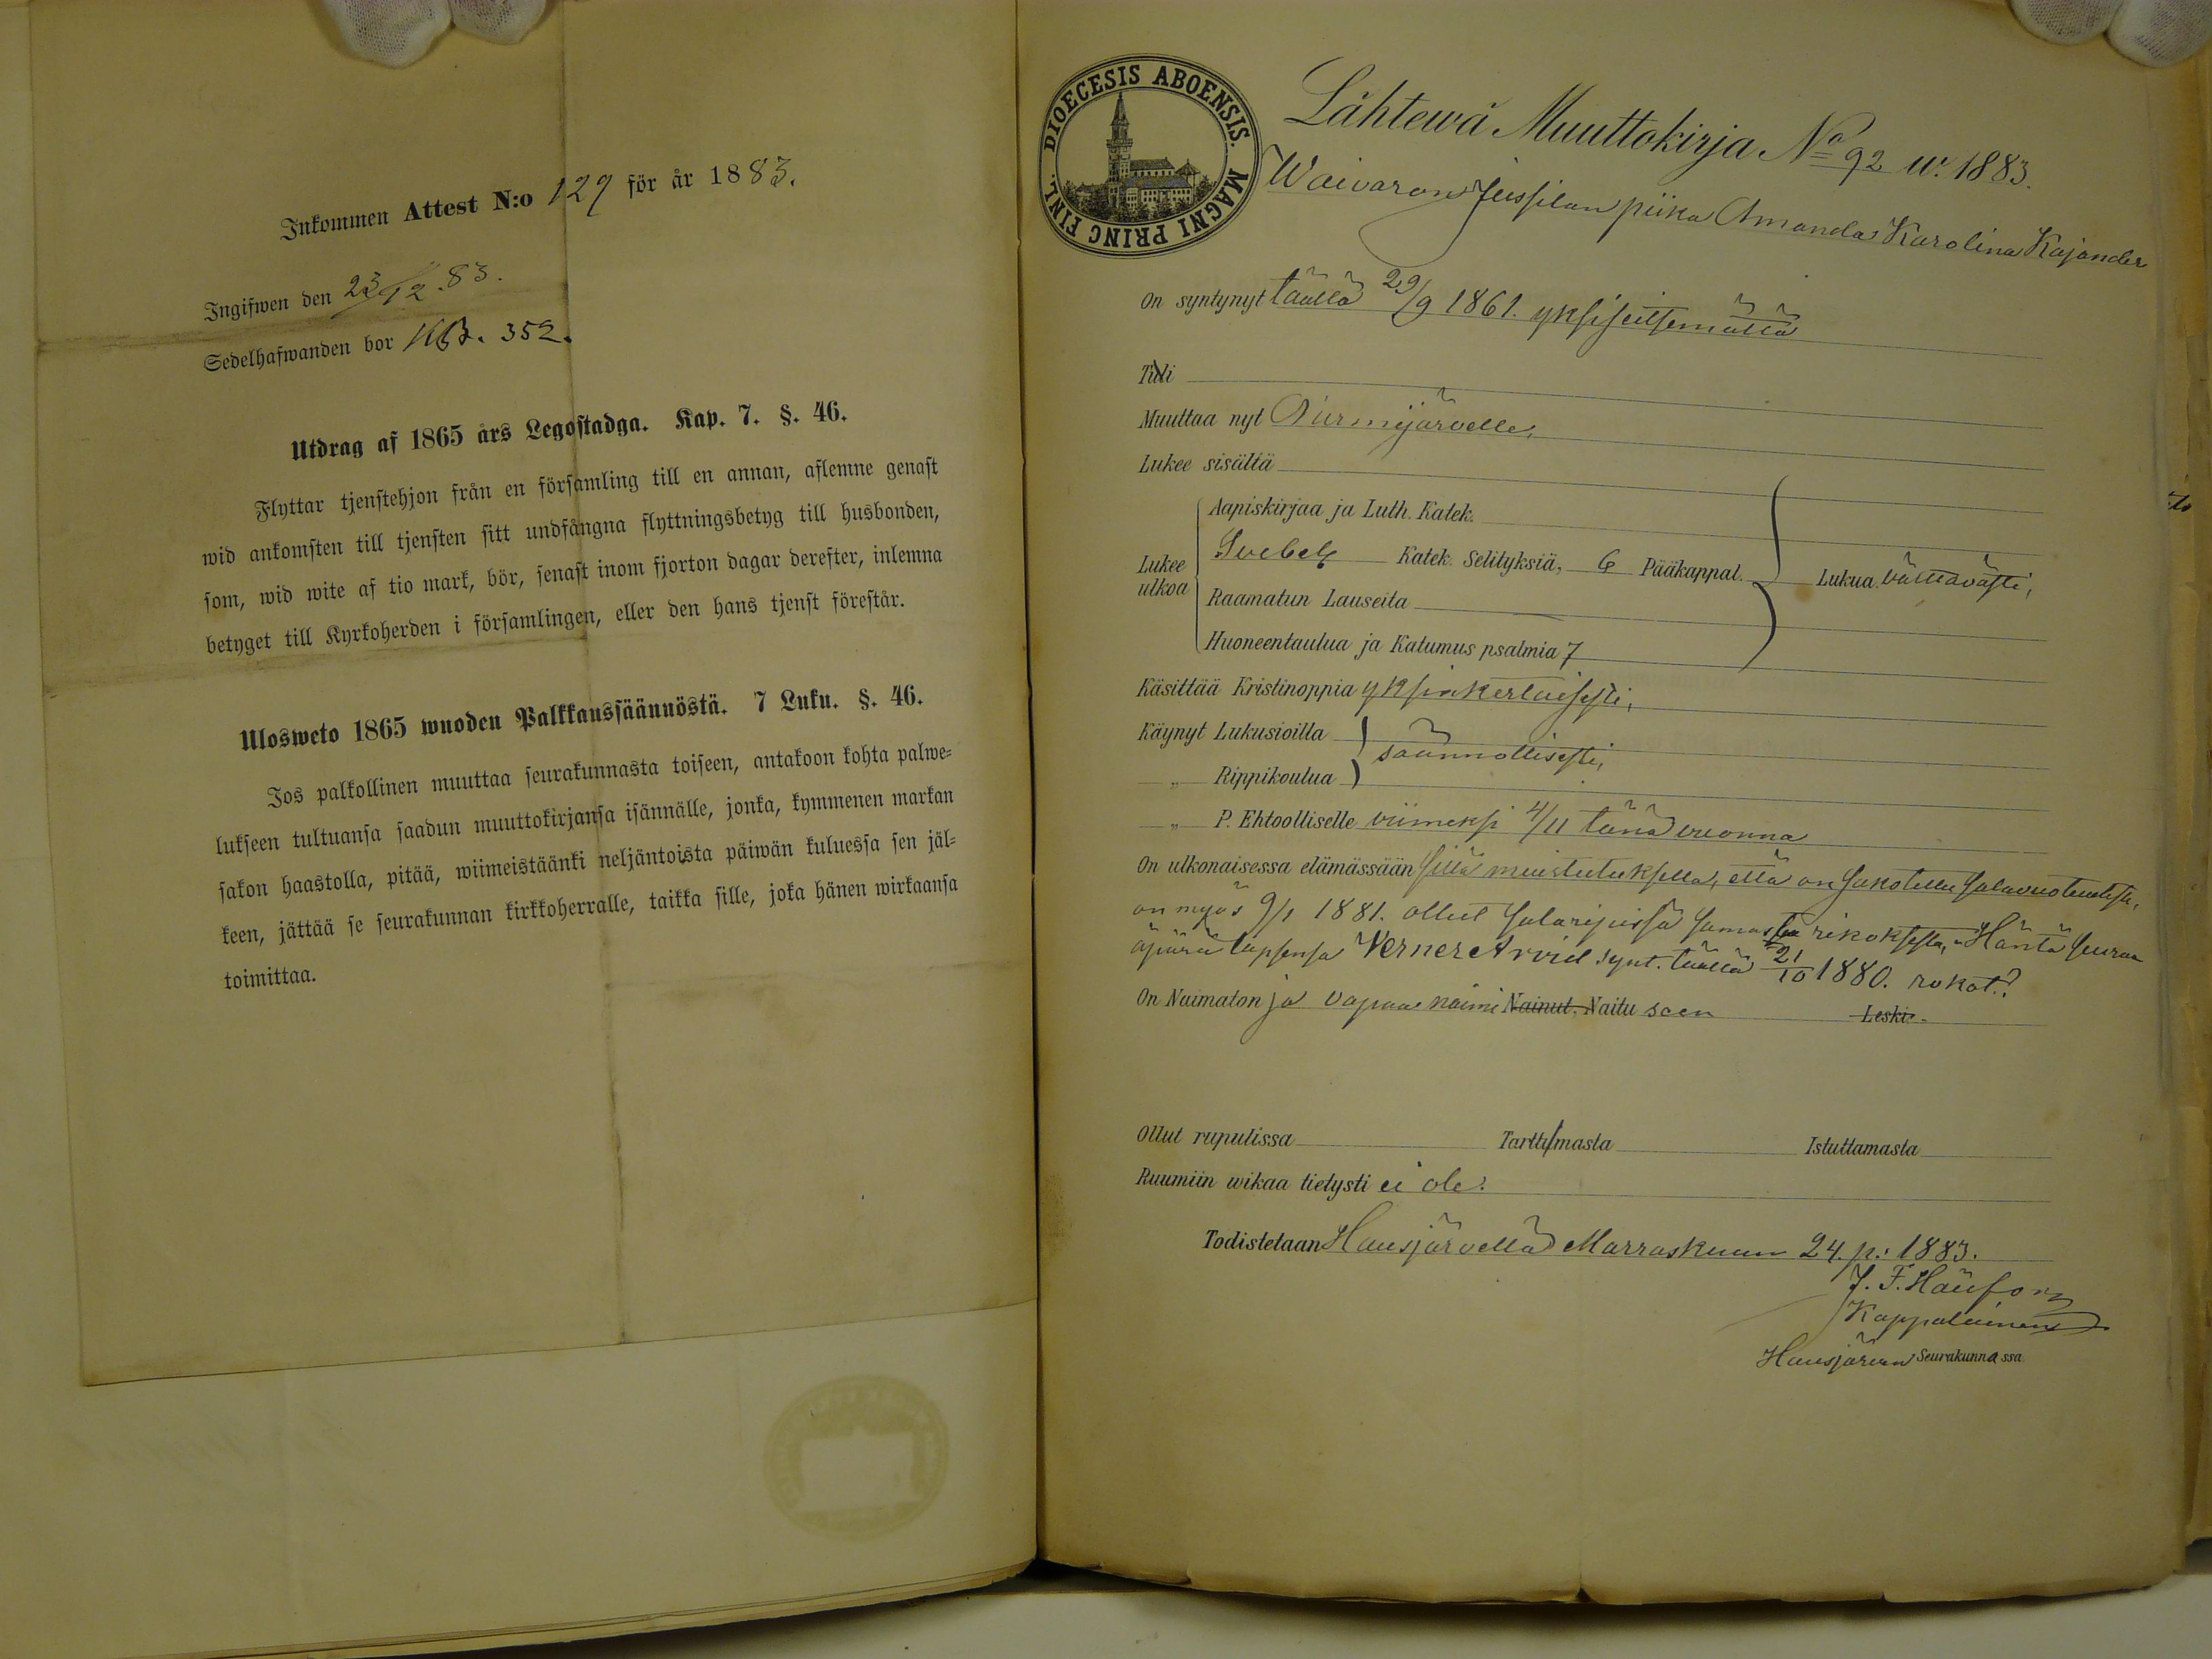 Inkommen Attest N:o 129 för år 1883.
Ingifwen den 23/12.83.
Sedelhafwanden bor KB. 352.
Utdrag af 1865 års Legostadga. Kap. 7. §. 46.
Flyttar tjenstehjon från en församling till en annan, aflemne genast
wid ankomsten till tjensten sitt undfångna flyttningsbetyg till husbonden,
som, wid wite af tio mark, bör, senast inom fjorton dagar derefter, inlemna
betyget till Kyrkoherden i församlingen, eller den hans tjenst förestår.
Ulosweto 1865 wuoden Palkkaussäännöstä. 7 Luku. §. 46.
Jos palkollinen muuttaa seurakunnasta toiseen, antakoon kohta palwe-
lukseen tultuansa saadun muuttokirjansa isännälle, jonka, kymmenen markan
sakon haastolla, pitää, wiimeistäänki neljäntoista päiwän kuluessa sen jäl-
keen, jättää se seurakunnan kirkkoherralle, taikka sille, joka hänen wirkaansa
toimittaa.
DIOECESIS ABOENSIS. MAGNI PRINC FINL.
Lähtewä Muuttokirja No 92 w. 1883.
Waivaron Jussilan piika Amanda Karolina Kajander
On syntynyt täällä 29/9 1861. yksiseitsemättä
Tuli
Muuttaa nyt Nurmijärvelle,
Lukee sisältä
Aapiskirjaa ja Luth. Katek.
Lukee ulkoa
Svebel. Katek. Selityksiä, 6 Pääkappal. Lukua. välttävästi,
Raamatun Lauseita
Huoneentaulua ja Katumus psalmia 7
Käsittää Kristinoppia yksinkertaisesti,
Käynyt Lukusioilla
säännöllisesti,
„ Rippikoulua
„ P. Ehtoolliselle viimeksi 4/11 tänä vuonna
On ulkonaisessa elämässään sillä muistutuksella, että on sakotettu salavuoteudesta,
on myös 9/1 1881. ollut salaripissä samasta rikoksesta, Häntä seuraa
äpärä lapsensa Verner Arvid synt. täällä 21/10 1880. rokot.?
On Naimaton ja vapaa naimi Nainut. Naitu seen Leski.
Ollut rupulissa Tarttumasta Istuttamasta
Ruumiin wikaa tietysti ei ole.
Todistetaan Hausjärvellä Marraskuun 24. p. 1883.
J. F. Häufors
Kappalainen
Hausjärven Seurakunnassa.